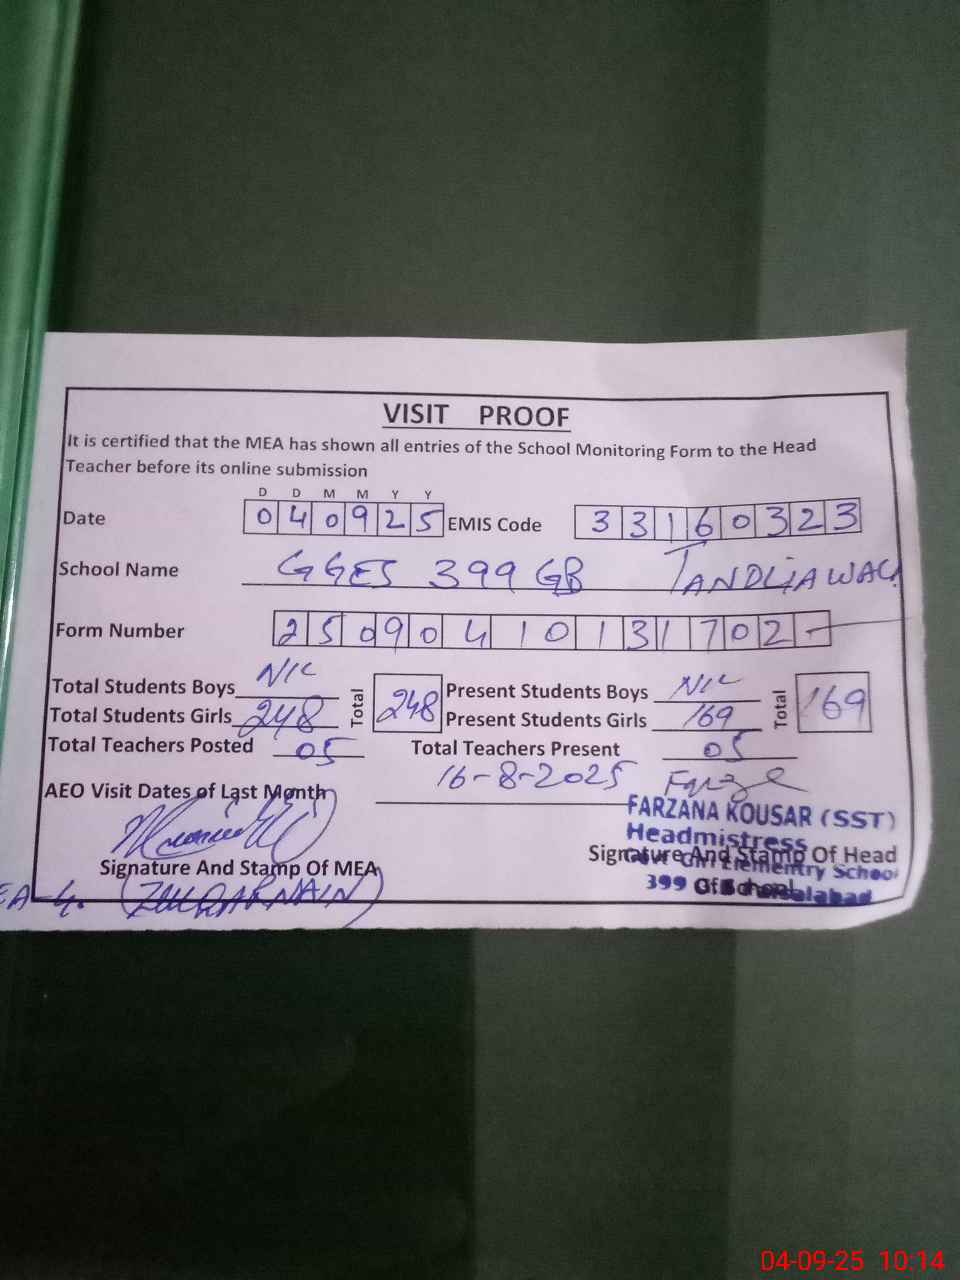 VISIT PROOF
It is certified that the MEA has shown all entries of the School Monitoring Form to the Head
Teacher before its online submission
D D M M Y Y
Date 0 4 0 9 2 5 EMIS Code 3 3 1 6 0 3 2 3
School Name GGES 399 GB TANDLIAWALA
Form Number 2 5 0 9 0 4 1 0 1 3 1 7 0 2 -
Total Students Boys NIL Total 248 Present Students Boys NIL Total 169
Total Students Girls 248 Present Students Girls 169
Total Teachers Posted 05 Total Teachers Present 05
AEO Visit Dates of Last Month 16-8-2025
FARZANA KOUSAR (SST)
Headmistress
Signature And Stamp Of MEA Signature And Stamp Of Head
Govt Girl Elementry School
Of School
399 GB Faisalabad
EA-4. (ZULQARNAIN)
04-09-25 10:14